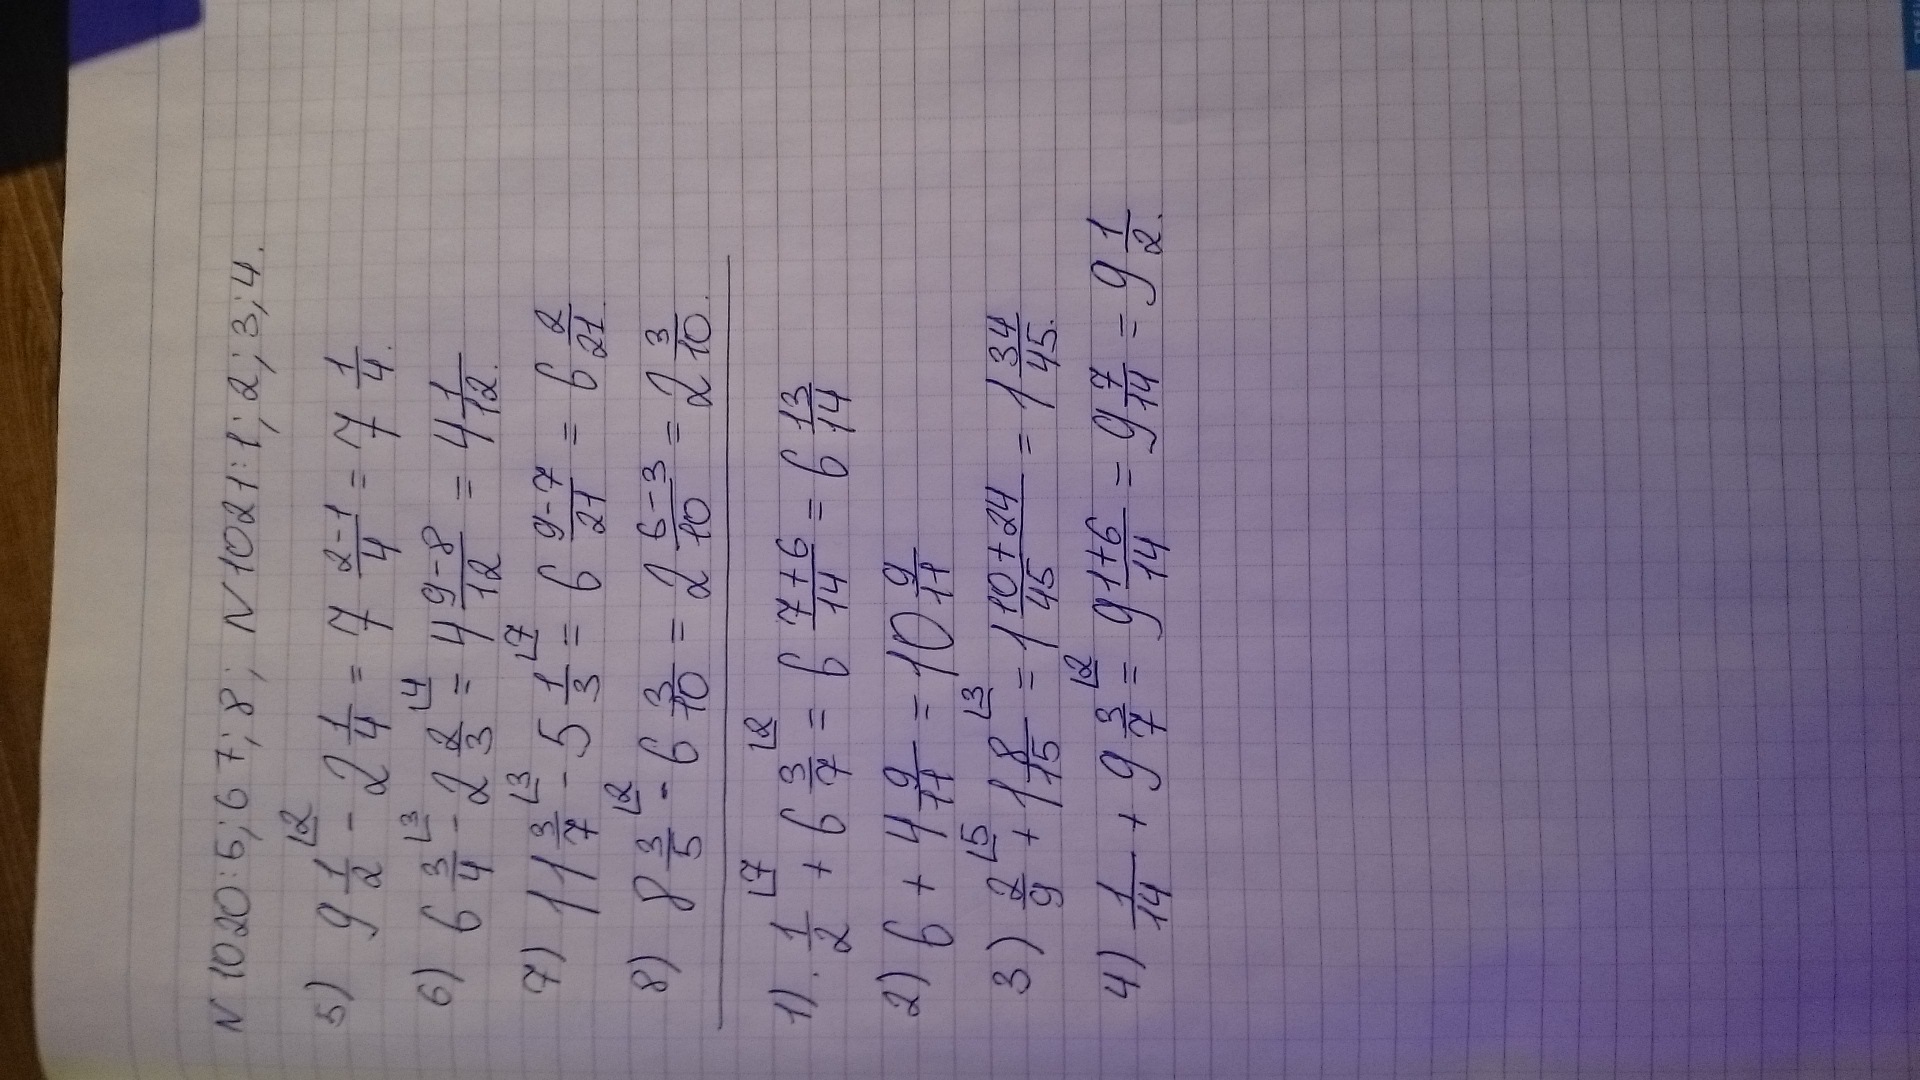 N 1020: 5; 6 7; 8; N 1021: 1; 2; 3; 4.
5) 9 1/2 ⌊2 - 2 1/4 = 7 2-1/4 = 7 1/4.
6) 6 3/4 ⌊3 - 2 2/3 ⌊4 = 4 9-8/12 = 4 1/12.
7) 11 3/7 ⌊3 - 5 1/3 ⌊7 = 6 9-7/21 = 6 2/21.
8) 8 3/5 ⌊2 - 6 3/10 = 2 6-3/10 = 2 3/10.
1). 1/2 ⌊7 + 6 3/7 ⌊2 = 6 7+6/14 = 6 13/14
2) 6 + 4 9/11 = 10 9/11
3) 2/9 ⌊5 + 1 8/15 ⌊3 = 1 10+24/45 = 1 34/45.
4) 1/14 + 9 3/7 ⌊2 = 9 1+6/14 = 9 7/14 = 9 1/2.